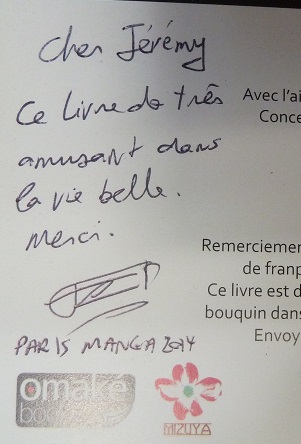 Cher Jérémy
Ce livre do très
amusant dans
la vie belle.
merci.
PARIS MANGA 2014
Avec l'ai
Conce
Remerciemer
de franp
Ce livre est d
bouquin dans
Envoy
omaké
boo
MIZUYA